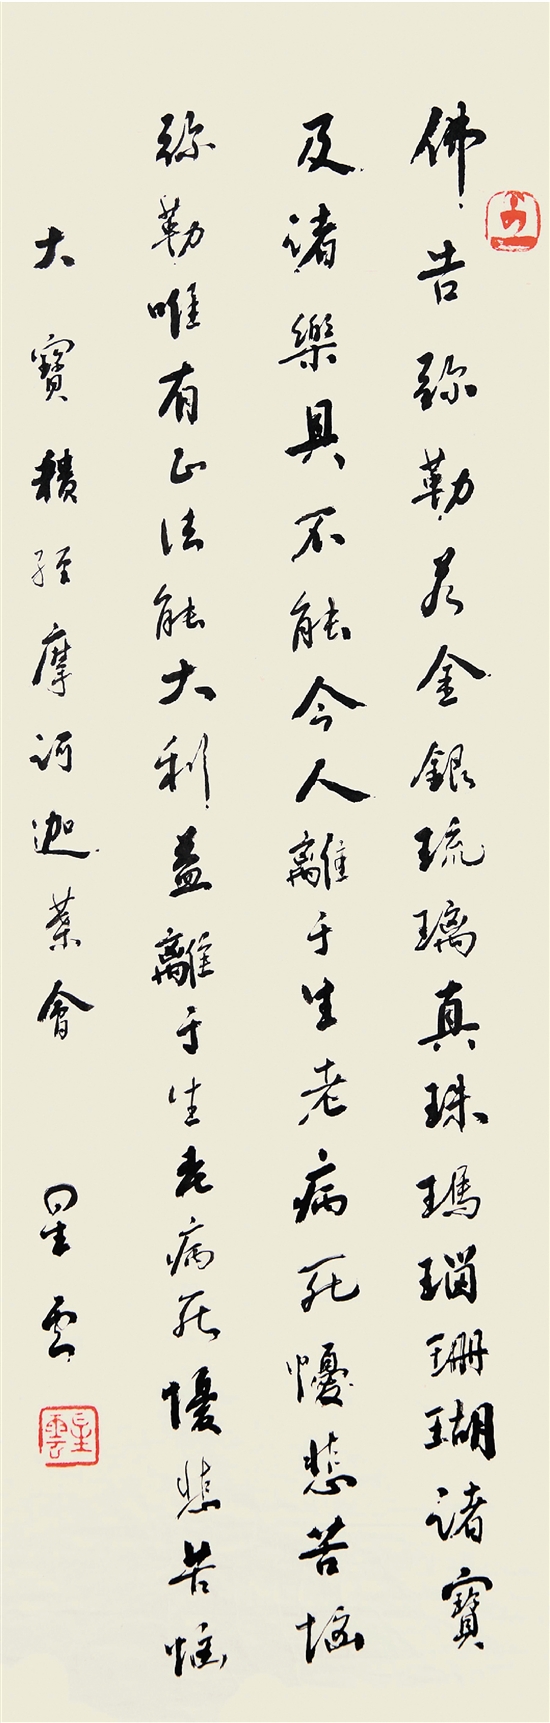 佛告弥勒若金銀琉璃真珠瑪瑙珊瑚諸寶
及諸樂具不能令人離于生老病死懮悲苦惱
弥勒唯有正法能大利益離于生老病死懮悲苦惱
大寶積经摩诃迦葉會
星雲
星雲